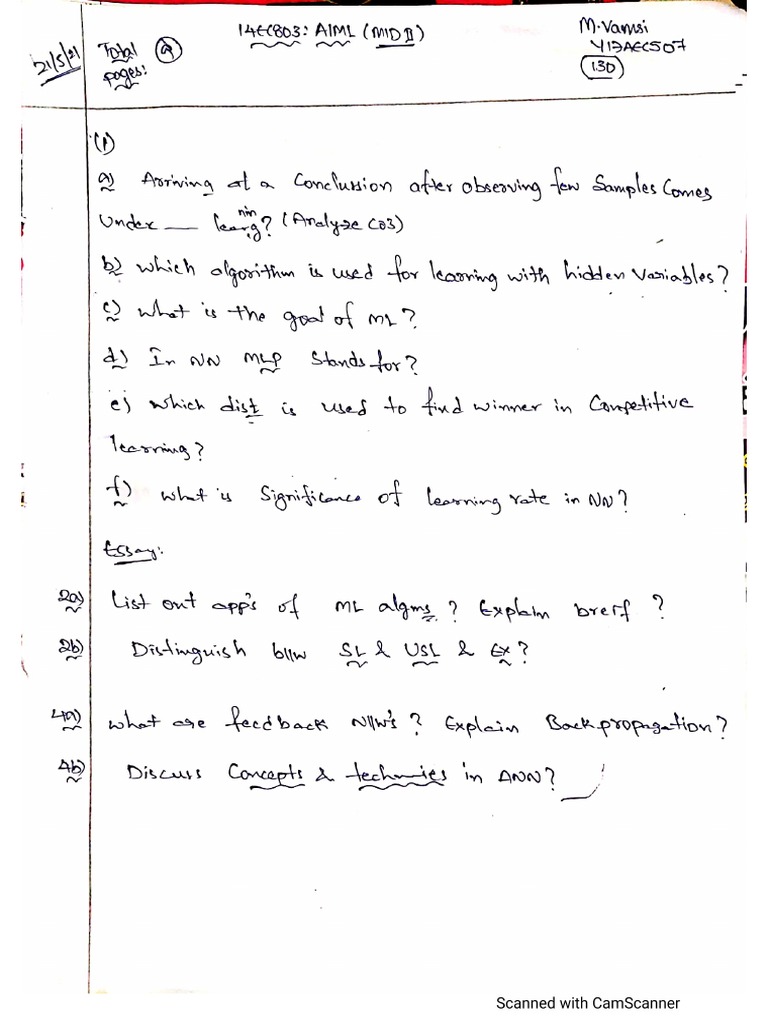 14EC803: AIML (MID II)
M. Vamsi
Y17AEC507
130
21/5/21
Total pages:
(1)
a) Arriving at a conclussion after observing few samples comes
under __ learning? (Analyze CO3)
b) which algorithm is used for learning with hidden variables?
c) what is the goal of ML?
d) In NN MLP stands for?
e) which dist is used to find winner in Competitive
learning?
f) what is significance of learning rate in NN?
Essay:
2a) List out app's of ML algms? Explain breif?
2b) Distinguish b/w SL & USL & Ex?
4a) what are feedback N/w's? Explain Backpropagation?
4b) Discuss Concepts & technuies in ANN?
Scanned with CamScanner